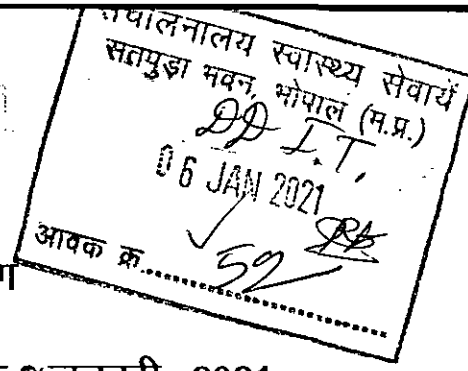 संचालनालय स्वास्थ्य सेवायें
सतपुड़ा भवन, भोपाल (म.प्र.)
DD I.T.
06 JAN 2021
आवक क्र. 52
जनवरी 2021